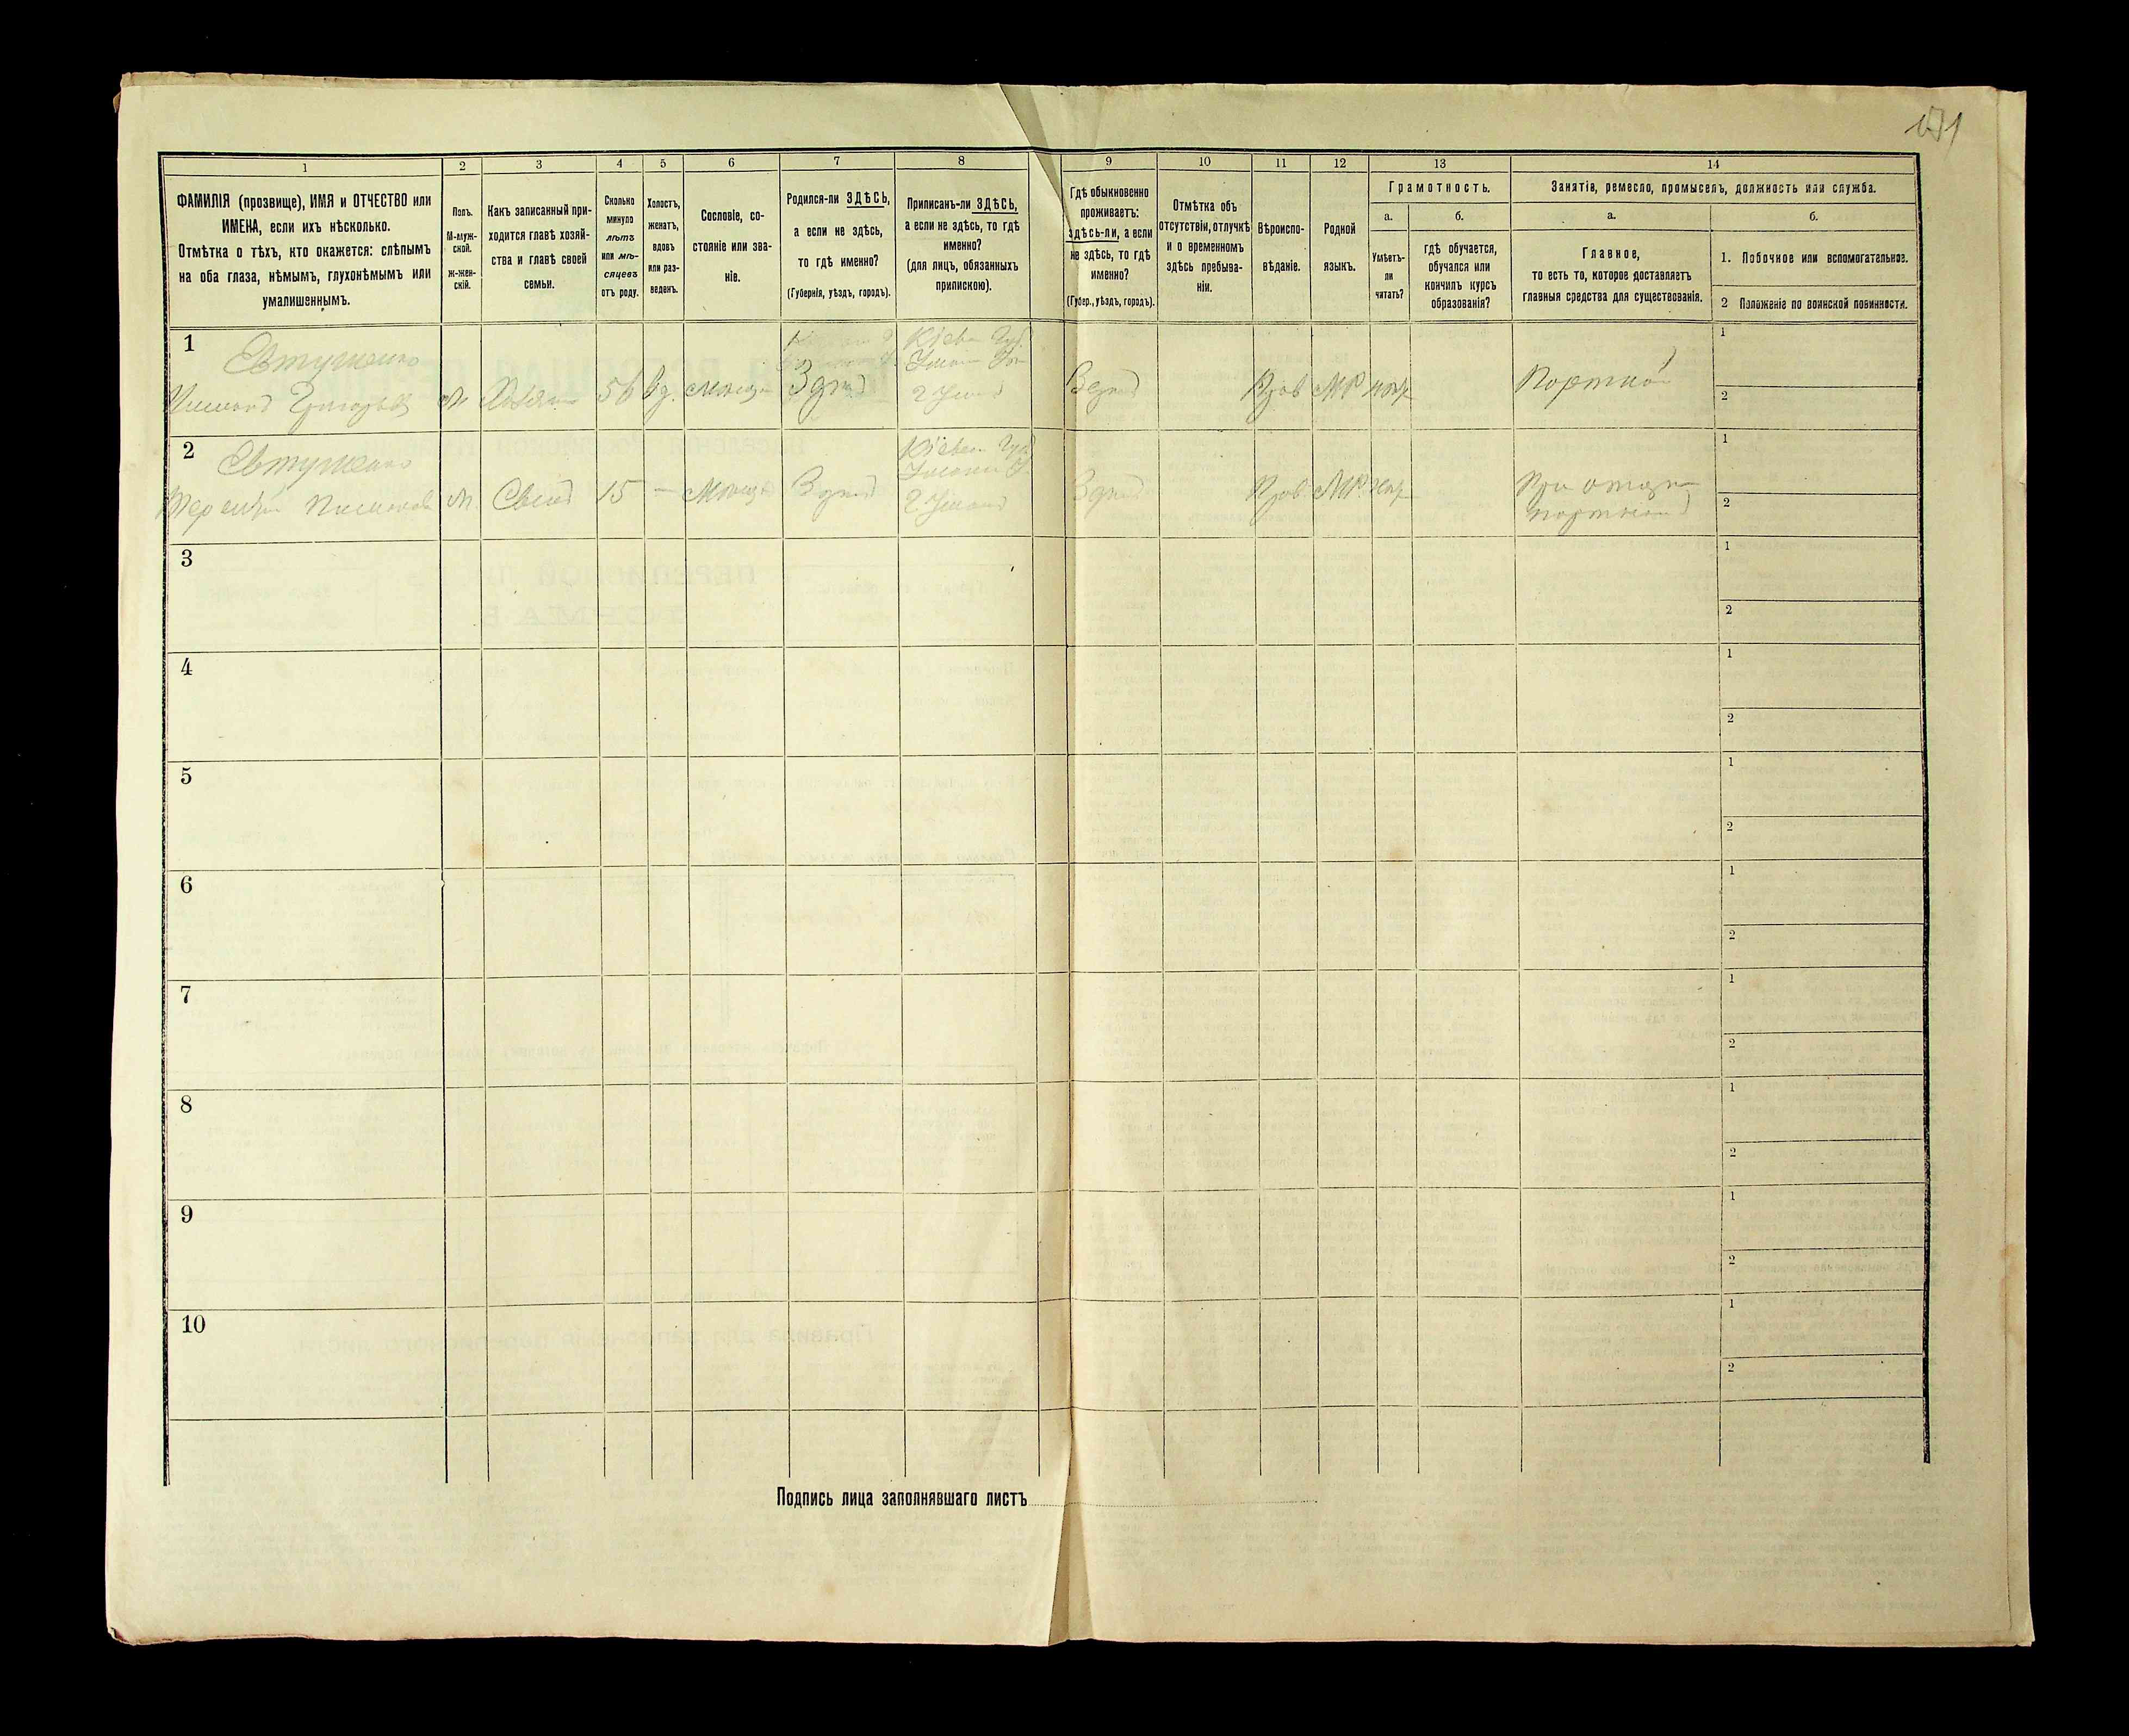 1 2 3 4 5 6 7 8 9 10 11 12 13 14
ФАМИЛІЯ (прозвище), ИМЯ и ОТЧЕСТВО или
ИМЕНА, если ихъ нѣсколько.
Отмѣтка о тѣхъ, кто окажется: слѣпымъ
на оба глаза, нѣмымъ, глухонѣмымъ или
умалишеннымъ.
Полъ.
М-муж-
ской.
ж-жен-
скій.
Какъ записанный при-
ходится главѣ хозяй-
ства и главѣ своей
семьи.
Сколько
минуло
лѣтъ
или мѣ-
сяцевъ
отъ роду.
Холостъ,
женатъ,
вдовъ
или раз-
веденъ.
Сословіе, со-
стояніе или зва-
ніе.
Родился-ли ЗДѢСЬ,
а если не здѣсь,
то гдѣ именно?
(Губернія, уѣздъ, городъ).
Приписанъ-ли ЗДѢСЬ,
а если не здѣсь, то гдѣ
именно?
(для лицъ, обязанныхъ
припискою).
Гдѣ обыкновенно
проживаетъ:
здѣсь-ли, а если
не здѣсь, то гдѣ
именно?
(Губер., уѣздъ, городъ).
Отмѣтка объ
отсутствіи, отлучкѣ
и о временномъ
здѣсь пребыва-
ніи.
Вѣроиспо-
вѣданіе.
Родной
языкъ.
Грамотность.
а.
Умѣетъ-
ли
читать?
б.
гдѣ обучается,
обучался или
кончилъ курсъ
образованія?
Занятія, ремесло, промыселъ, должность или служба.
а.
Главное,
то есть то, которое доставляетъ
главныя средства для существованія.
б.
1. Побочное или вспомогательное.
2 Положеніе по воинской повинности.
1
Евтушенко
Григорьев м Хозяин 56 вд. мещан
Кіевск Губ.
г Умань
Прав МР
Портной
1
2
2
Евтушенко
Терентій м. Сын 15 — мещан
Кіевск Губ
г. Умань
Прав МР.
При отце
портной
1
2
3
1
2
4
1
2
5
1
2
6
1
2
7
1
2
8
1
2
9
1
2
10
1
2
Подпись лица заполнявшаго листъ